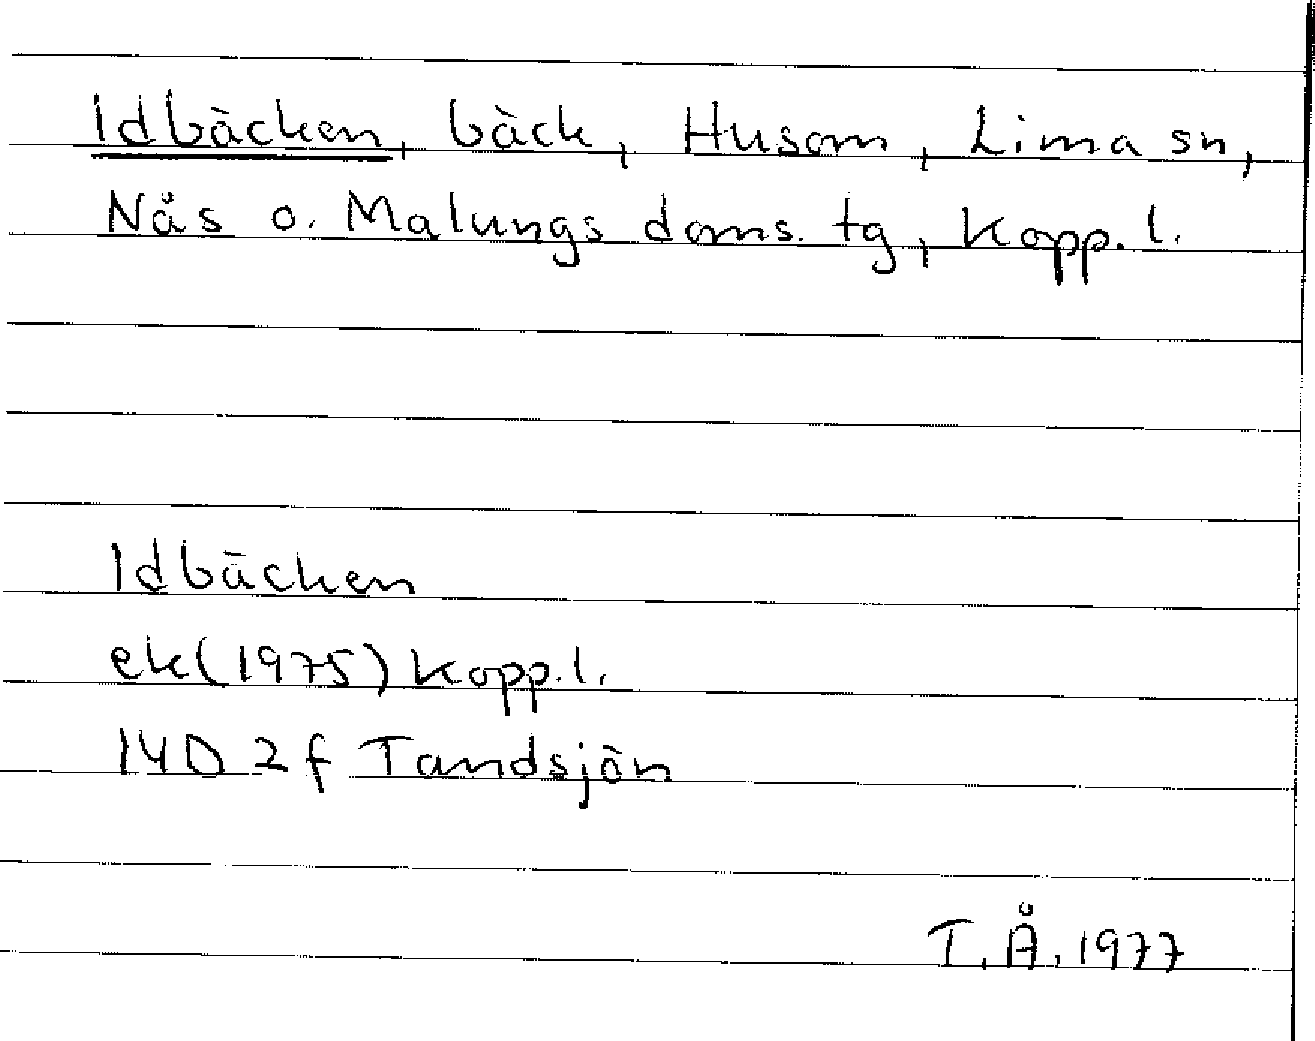 Idbäcken, bäck, Husom, Lima sn,
Nås o. Malungs doms. tg, Kopp. l.
Idbäcken
ek(1975) Kopp. l.
14D 2f Tandsjön
T. Å. 1977